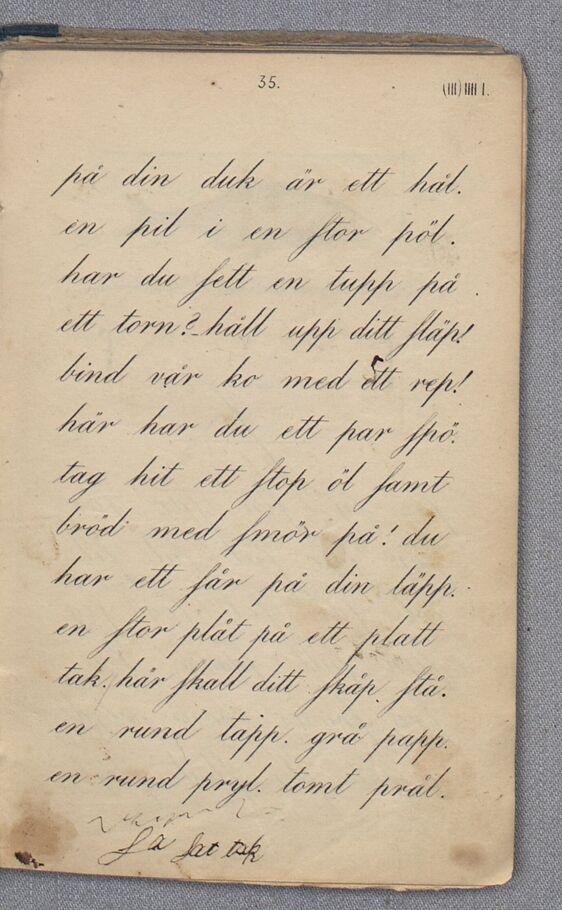 35.
på din duk är ett hål.
en pil i en stor pöl.
har du sett en tupp på
ett torn? håll upp ditt släp!
bind vår ko med ett rep!
här har du ett par spö.
tag hit ett stop öl samt
bröd med smör på! du
har ett sår på din läpp.
en stor plåt på ett platt
tak. här skall ditt skåp stå.
en rund tapp. grå papp.
en rund pryl. tomt prål.